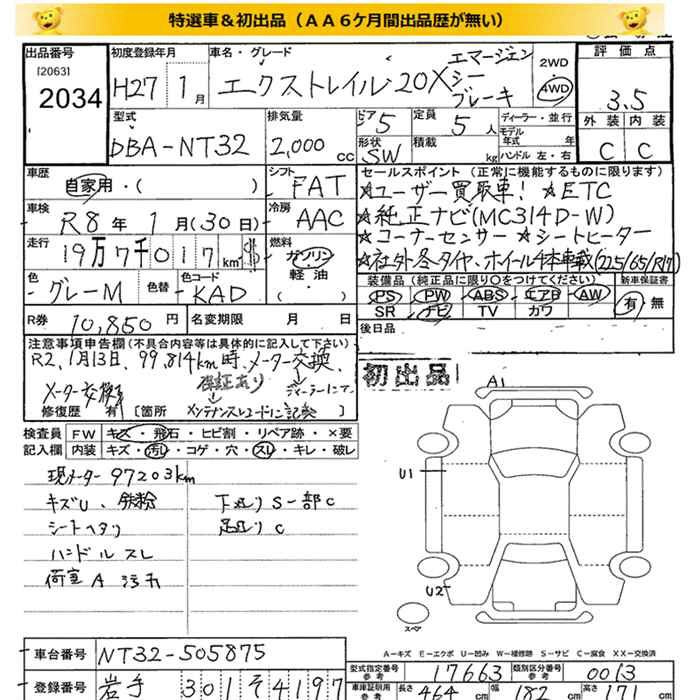 特選車＆初出品（ＡＡ６ケ月間出品歴が無い）
出品番号 初度登録年月 車名・グレード 評価点
[2063]
2034
H27 1月 エクストレイル20X エマージェンシーブレーキ 2WD 4WD
3.5
型式 排気量 ドア 5 定員 5人 ディーラー・並行
DBA-NT32 2,000cc 形状 SW 積載 kg モデル年式 年 ハンドル 左・右
外装 内装
C C
車歴 自家用・( ) シフト FAT
セールスポイント（正常に機能するものに限ります）
☆ユーザー買取車! ☆ETC
車検 R8年 1月(30日) 冷房 AAC
☆純正ナビ(MC314D-W)
☆コーナーセンサー ☆シートヒーター
走行 19万7千017km 燃料 ガソリン 軽油 ( )
☆社外冬タイヤ、ホイール4本車載(225/65/R17)
色 グレーM 色替 色コード KAD
装備品（純正品に限り○をつけてください） 新車保証書
PS PW ABS エアB AW 有 無
SR ナビ TV カワ
R券 10,850円 名変期限 月 日
後日品
注意事項申告欄(不具合内容等は具体的に記入して下さい)
R2,1月13日,99,814km時、メーター交換、
メーター交換車 保証あり ディーラーにて
修復歴 有 [箇所 メンテナンスレコードに記載 ]
初出品
A1
検査員 FW キズ・飛石・ヒビ割・リペア跡・×要
記入欄 内装 キズ・汚れ・コゲ・穴・スレ・キレ・破レ
現メーター97203km
キズU、鉄粉 下廻りS一部C
シートヘタリ 足廻りC
ハンドルスレ
荷室A 汚れ
U1
U2
スペア
A－キズ E－エクボ U－凹み W－補修跡 S－サビ C－腐食 XX－交換済
車台番号 NT32-505875
型式指定番号 17663 類別区分番号 0013
登録番号 岩手 301 そ 4197
車庫証明用参考 長さ 464cm 幅 182cm 高さ